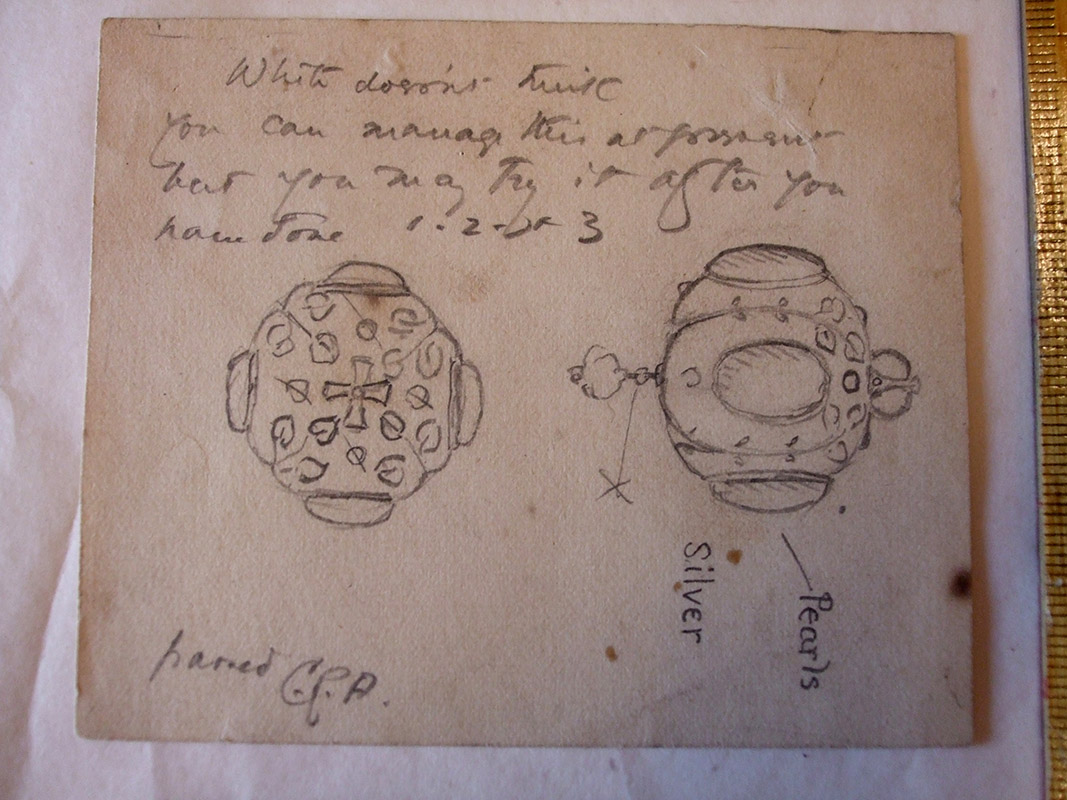 White doesn't think
you can manage this at present
but you may try it after you
have done 1-2-&3
Pearls
Silver
passed C.R.A.